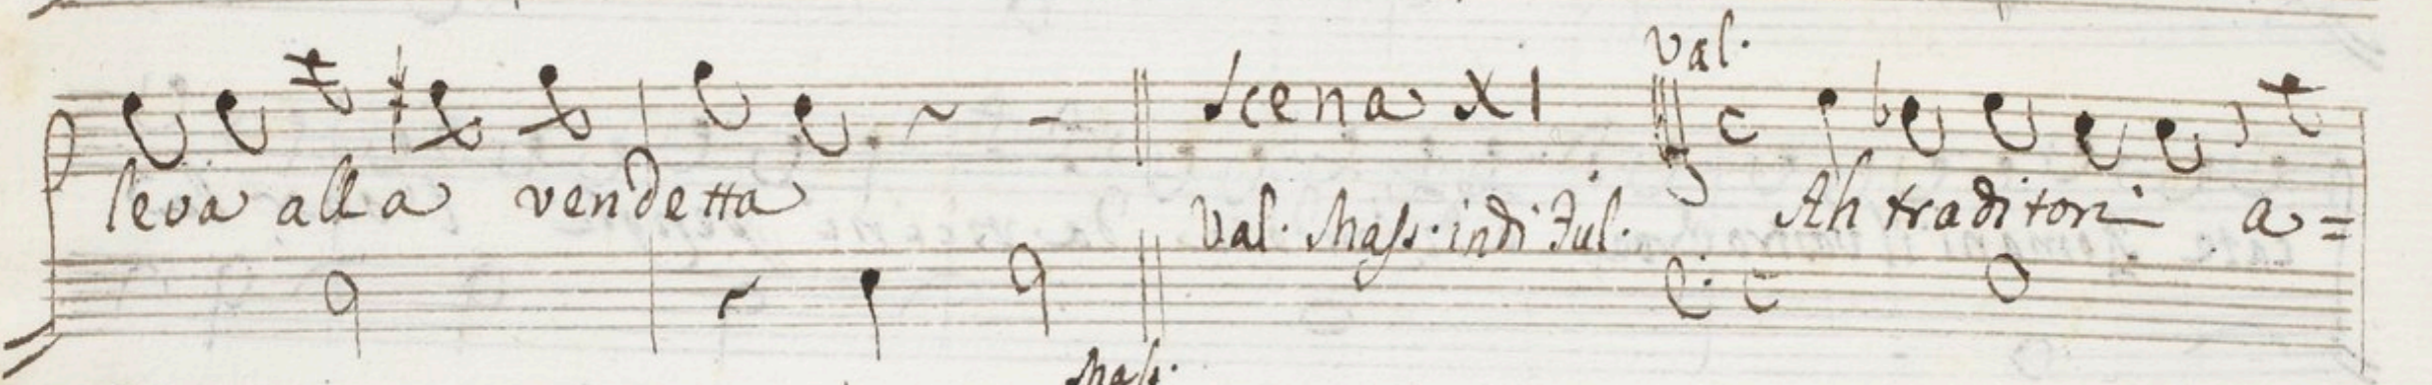 Val.
Scena XI
leva alla vendetta
Val. Mass. indi Ful.
Ah traditori a=
Mass.